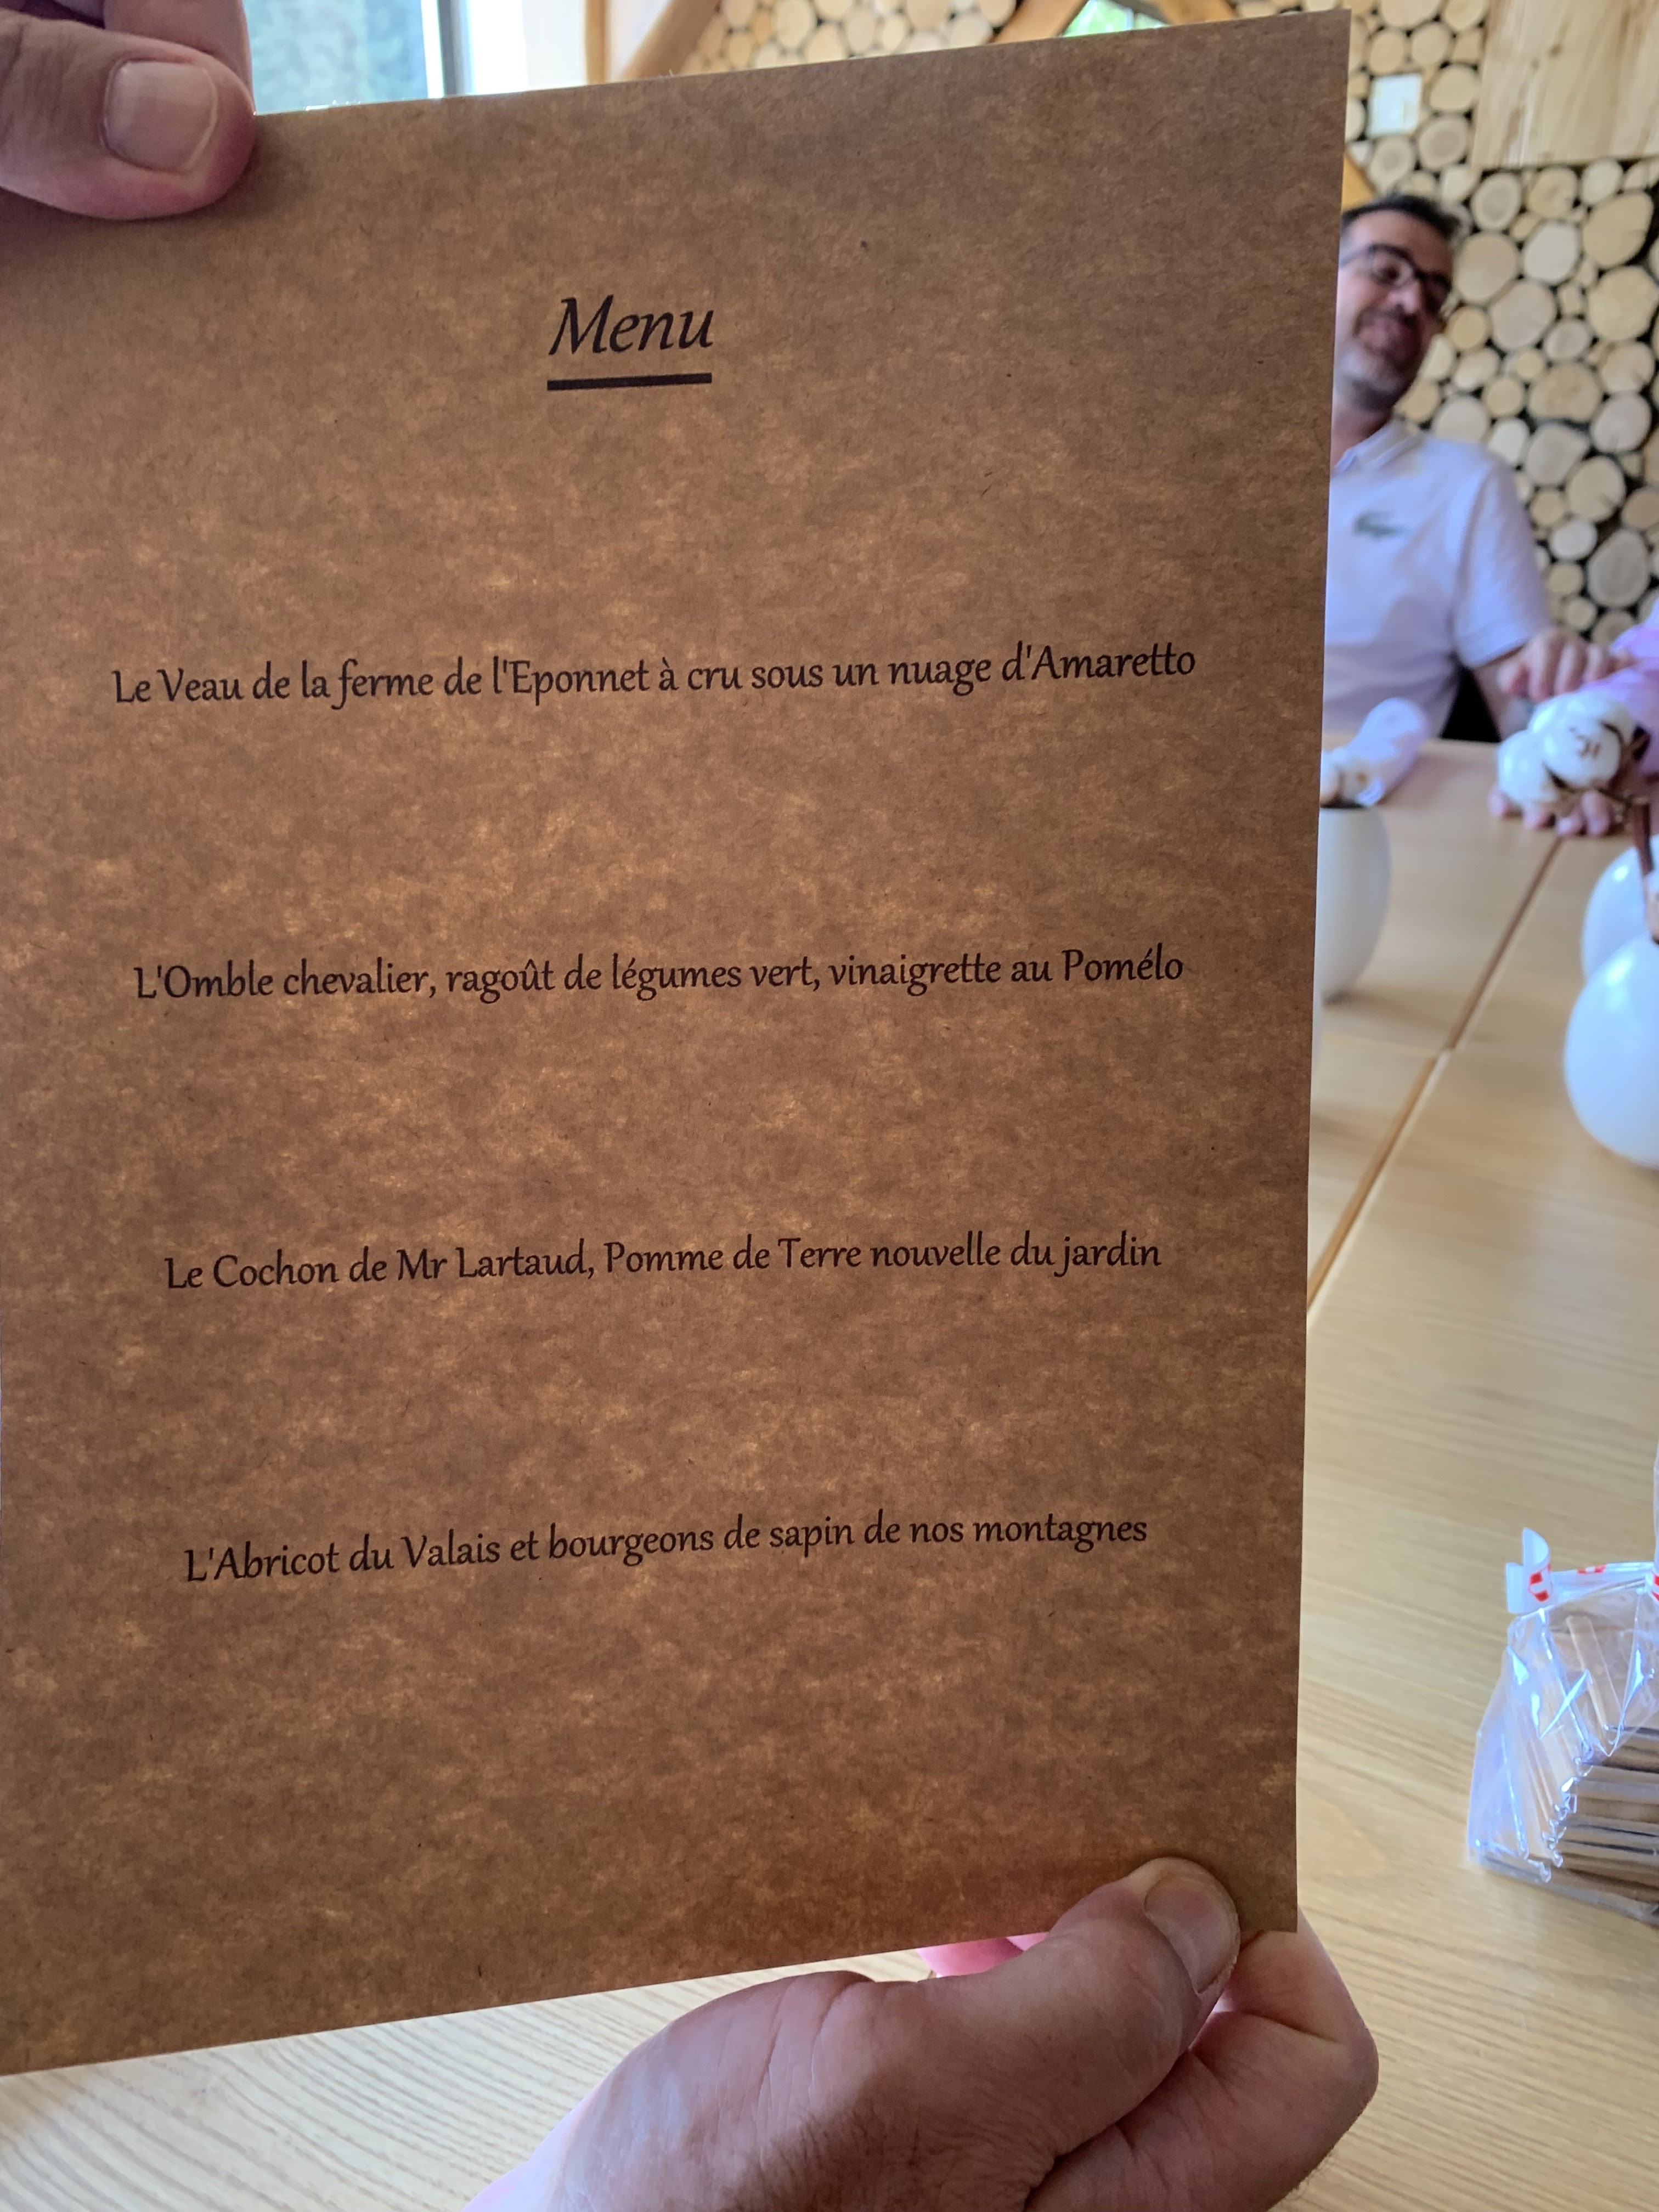 Menu
Le Veau de la ferme de l'Eponnet à cru sous un nuage d'Amaretto
L'Omble chevalier, ragoût de légumes vert, vinaigrette au Pomélo
Le Cochon de Mr Lartaud, Pomme de Terre nouvelle du jardin
L'Abricot du Valais et bourgeons de sapin de nos montagnes